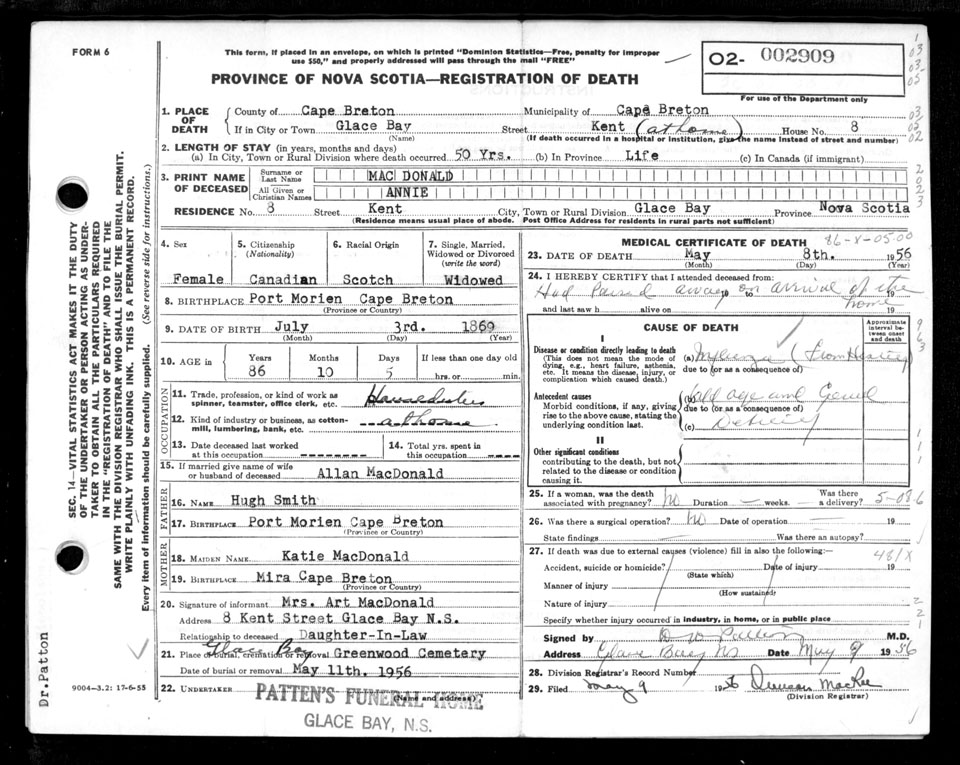 FORM 6
This form, if placed in an envelope, on which is printed "Dominion Statistics—Free, penalty for improper
use $50," and properly addressed will pass through the mail "FREE"
O2- 002909
For use of the Department only
PROVINCE OF NOVA SCOTIA—REGISTRATION OF DEATH
1. PLACE OF DEATH
County of Cape Breton Municipality of Cape Breton
If in City or Town Glace Bay Street Kent (at home) House No. 8
(Name) (If death occurred in a hospital or institution, give the name instead of street and number)
2. LENGTH OF STAY (in years, months and days)
(a) In City, Town or Rural Division where death occurred 50 Yrs. (b) In Province Life (c) In Canada (if immigrant)
3. PRINT NAME OF DECEASED
Surname or Last Name MAC DONALD
All Given or Christian Names ANNIE
RESIDENCE No. 8 Street Kent City, Town or Rural Division Glace Bay Province Nova Scotia
(Residence means usual place of abode. Post Office Address for residents in rural parts not sufficient)
4. Sex Female
5. Citizenship (Nationality) Canadian
6. Racial Origin Scotch
7. Single, Married, Widowed or Divorced (write the word) Widowed
8. BIRTHPLACE Port Morien Cape Breton
(Province or Country)
9. DATE OF BIRTH July 3rd. 1869
(Month) (Day) (Year)
10. AGE in Years Months Days If less than one day old
86 10 5 hrs. or min.
OCCUPATION
11. Trade, profession or kind of work as
spinner, teamster, office clerk, etc.
12. Kind of industry or business, as cotton-
mill, lumbering, bank, etc. at home
13. Date deceased last worked
at this occupation
14. Total yrs. spent in
this occupation
15. If married give name of wife
or husband of deceased Allan MacDonald
FATHER
16. NAME Hugh Smith
17. BIRTHPLACE Port Morien Cape Breton
(Province or Country)
MOTHER
18. MAIDEN NAME Katie MacDonald
19. BIRTHPLACE Mira Cape Breton
(Province or Country)
20. Signature of informant Mrs. Art MacDonald
Address 8 Kent Street Glace Bay N.S.
Relationship to deceased Daughter-In-Law
21. Place of burial, cremation or removal Glace Bay Greenwood Cemetery
Date of burial or removal May 11th. 1956
22. UNDERTAKER PATTEN'S FUNERAL HOME
(Name and address)
GLACE BAY, N.S.
MEDICAL CERTIFICATE OF DEATH
86-X-05-00
23. DATE OF DEATH May 8th. 1956
(Month) (Day) (Year)
24. I HEREBY CERTIFY that I attended deceased from:
Had Passed away on arrival at the home
and last saw h alive on 19
CAUSE OF DEATH
Approximate interval between onset and death
I
Disease or condition directly leading to death
(This does not mean the mode of
dying, e.g., heart failure, asthenia,
etc. It means the disease, injury, or
complication which caused death.)
(a) (From History)
due to (or as a consequence of)
Antecedent causes
Morbid conditions, if any, giving
rise to the above cause, stating the
underlying condition last.
(b) old age and
due to (or as a consequence of)
(c)
II
Other significant conditions
contributing to the death, but not
related to the disease or condition
causing it.
25. If a woman, was the death
associated with pregnancy? No Duration — weeks. Was there a delivery?
26. Was there a surgical operation? No Date of operation 19
State findings Was there an autopsy?
27. If death was due to external causes (violence) fill in also the following:—
Accident, suicide or homicide? Date of injury 19
(State which)
Manner of injury
(How sustained)
Nature of injury
Specify whether injury occurred in industry, in home, or in public place
Signed by M.D.
Address Glace Bay NS Date May 9 1956
28. Division Registrar's Record Number
29. Filed May 9 1956 Duncan MacRae
(Division Registrar)
SEC. 14—VITAL STATISTICS ACT MAKES IT THE DUTY
OF THE UNDERTAKER OR PERSON ACTING AS UNDER-
TAKER TO OBTAIN ALL THE PARTICULARS REQUIRED
IN THE "REGISTRATION OF DEATH" AND TO FILE THE
SAME WITH THE DIVISION REGISTRAR WHO SHALL ISSUE THE BURIAL PERMIT.
WRITE PLAINLY WITH UNFADING INK. THIS IS A PERMANENT RECORD.
Every item of information should be carefully supplied. (See reverse side for instructions.)
Dr. Patton
9004-3.2: 17-6-55